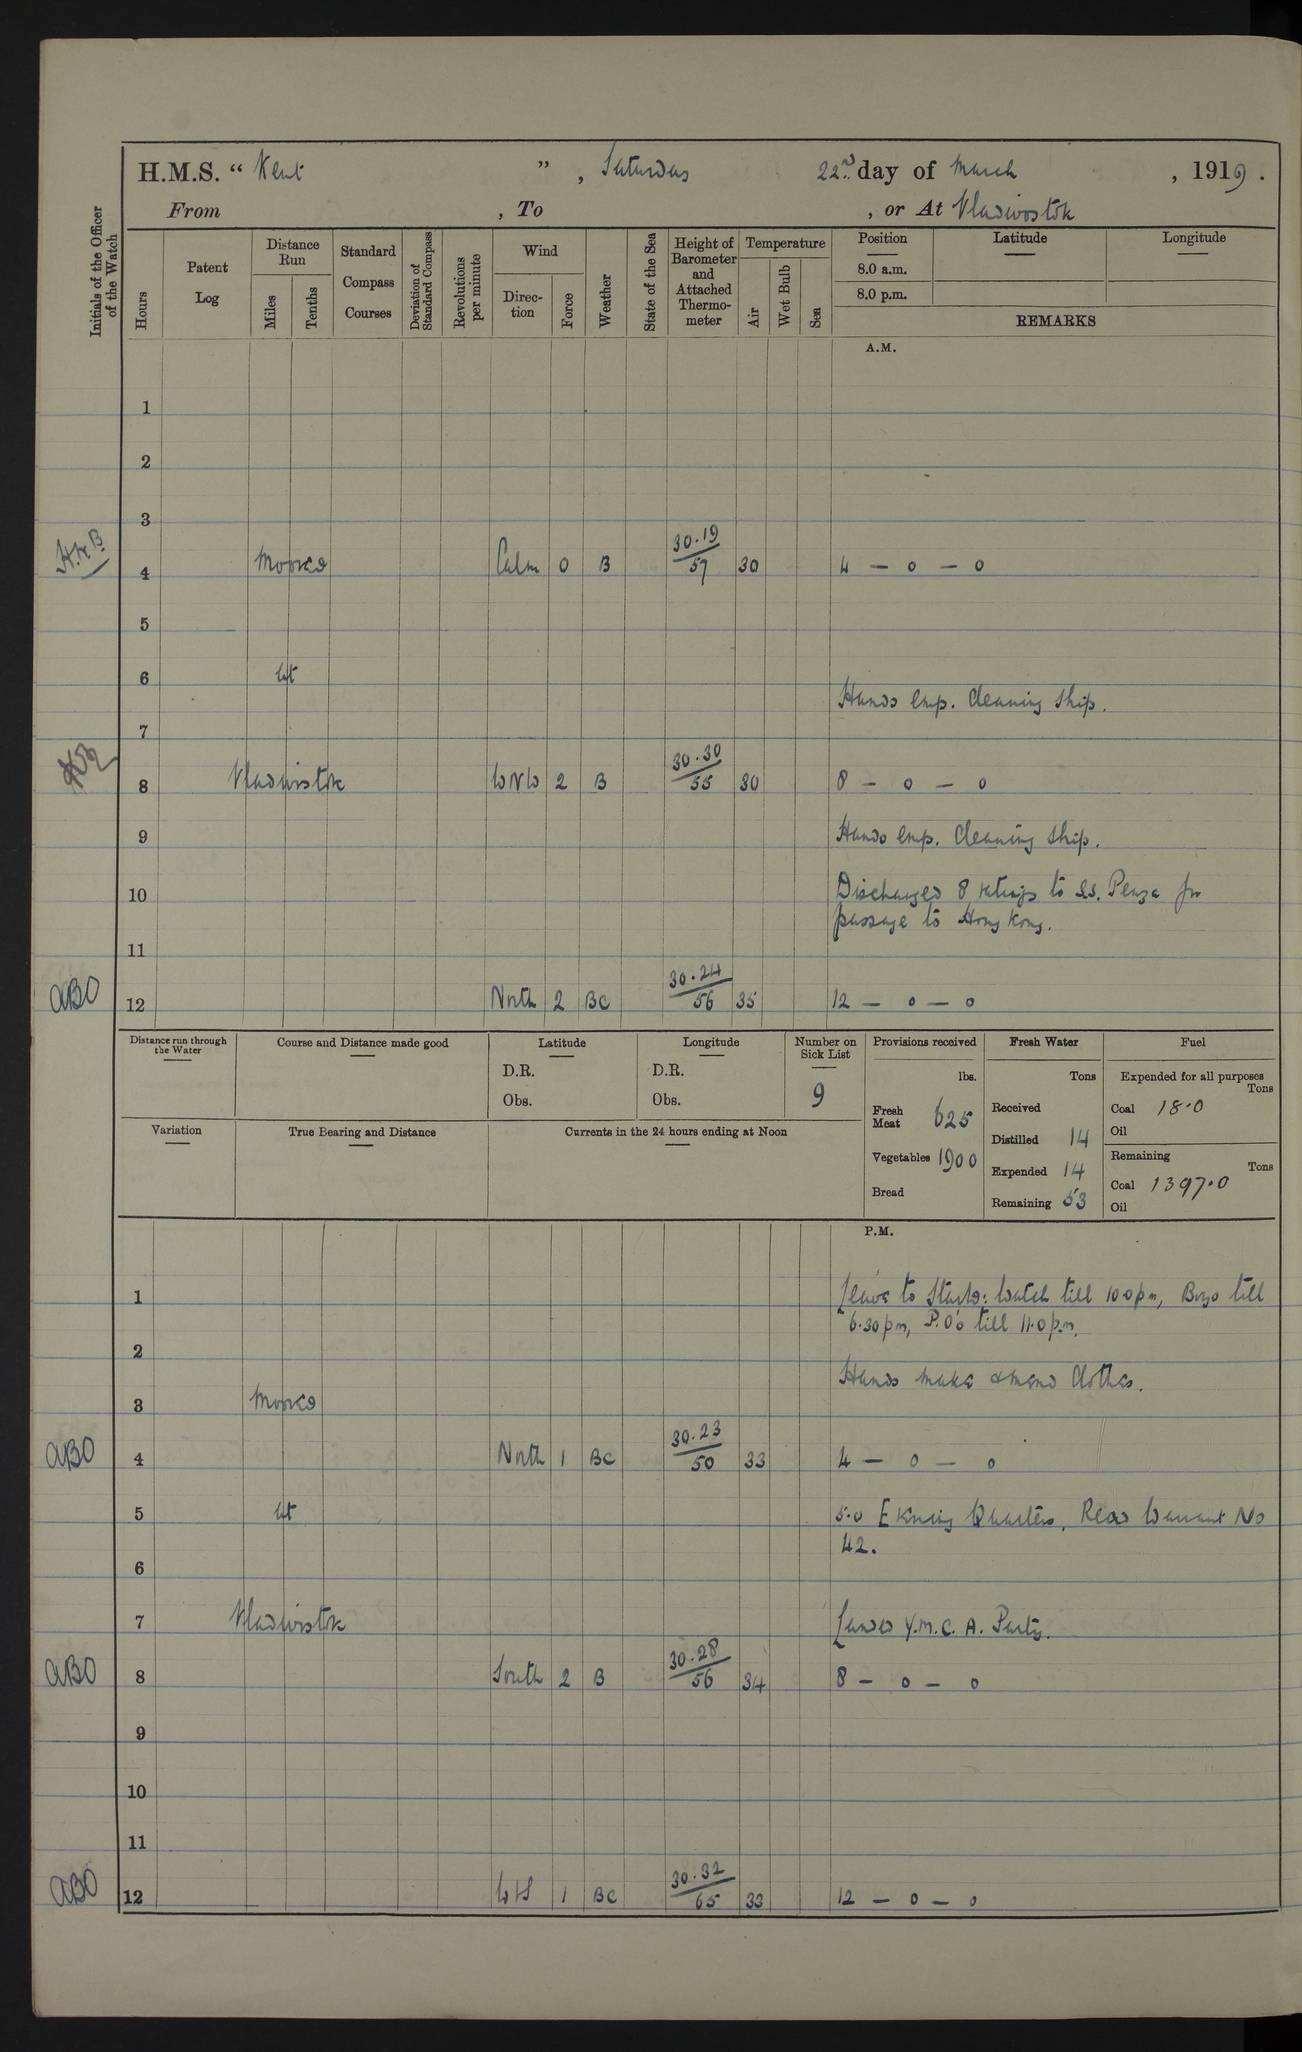 H.M.S. “ Kent ” , Saturday 22nd day of March , 1919 .
From , To , or At Vladivostok
Initials of the Officer of the Watch
Hours
Patent Log
Distance Run
Miles
Tenths
Standard Compass Courses
Deviation of Standard Compass
Revolutions per minute
Wind
Direc- tion
Force
Weather
State of the Sea
Height of Barometer and Attached Thermo- meter
Temperature
Air
Wet Bulb
Sea
Position Latitude Longitude
8.0 a.m.
8.0 p.m.
REMARKS
A.M.
1
2
3
4 Moored Calm 0 B 30.19/57 30 4 — 0 — 0
5
6 at
Hands emp. cleaning ship.
7
8 Vladivostok WNW 2 B 30.30/55 30 8 — 0 — 0
9 Hands emp. cleaning ship.
10 Discharged 8 ratings to s.s. Penza for
passage to Hong Kong.
11
ABO 12 North 2 BC 30.24/56 35 12 — 0 — 0
Distance run through the Water
Course and Distance made good
Latitude
D.R.
Obs.
Longitude
D.R.
Obs.
Number on Sick List
9
Provisions received
lbs.
Fresh Meat 625
Vegetables 1900
Bread
Fresh Water
Tons
Received
Distilled 14
Expended 14
Remaining 53
Fuel
Expended for all purposes
Tons
Coal 18.0
Oil
Remaining
Tons
Coal 1397.0
Oil
Variation
True Bearing and Distance
Currents in the 24 hours ending at Noon
P.M.
1 Leave to Starbd: Watch till 10.0pm, Boys till
6.30pm, P.O's till 11.0p.m.
2
Hands make & mend clothes.
3 Moored
ABO 4 North 1 BC 30.23/50 33 4 — 0 — 0
5 at 5.0 Evening Quarters. Read Warrant No
42.
6
7 Vladivostok Landed Y.M.C.A. Party.
ABO 8 South 2 B 30.28/56 34 8 — 0 — 0
9
10
11
ABO 12 1 BC 30.32/65 33 12 — 0 — 0